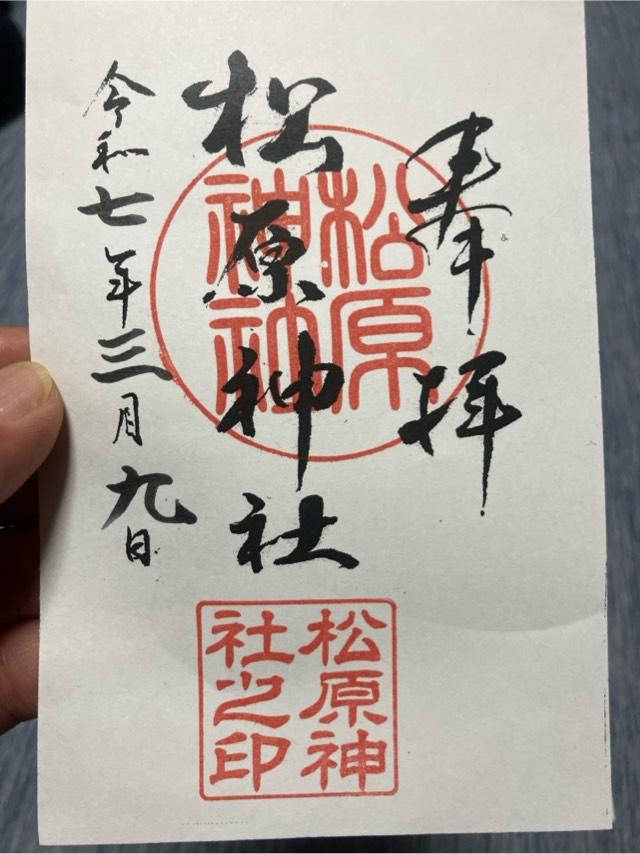 奉拝
松原神社
令和七年三月九日
松原
神社
松原神
社之印